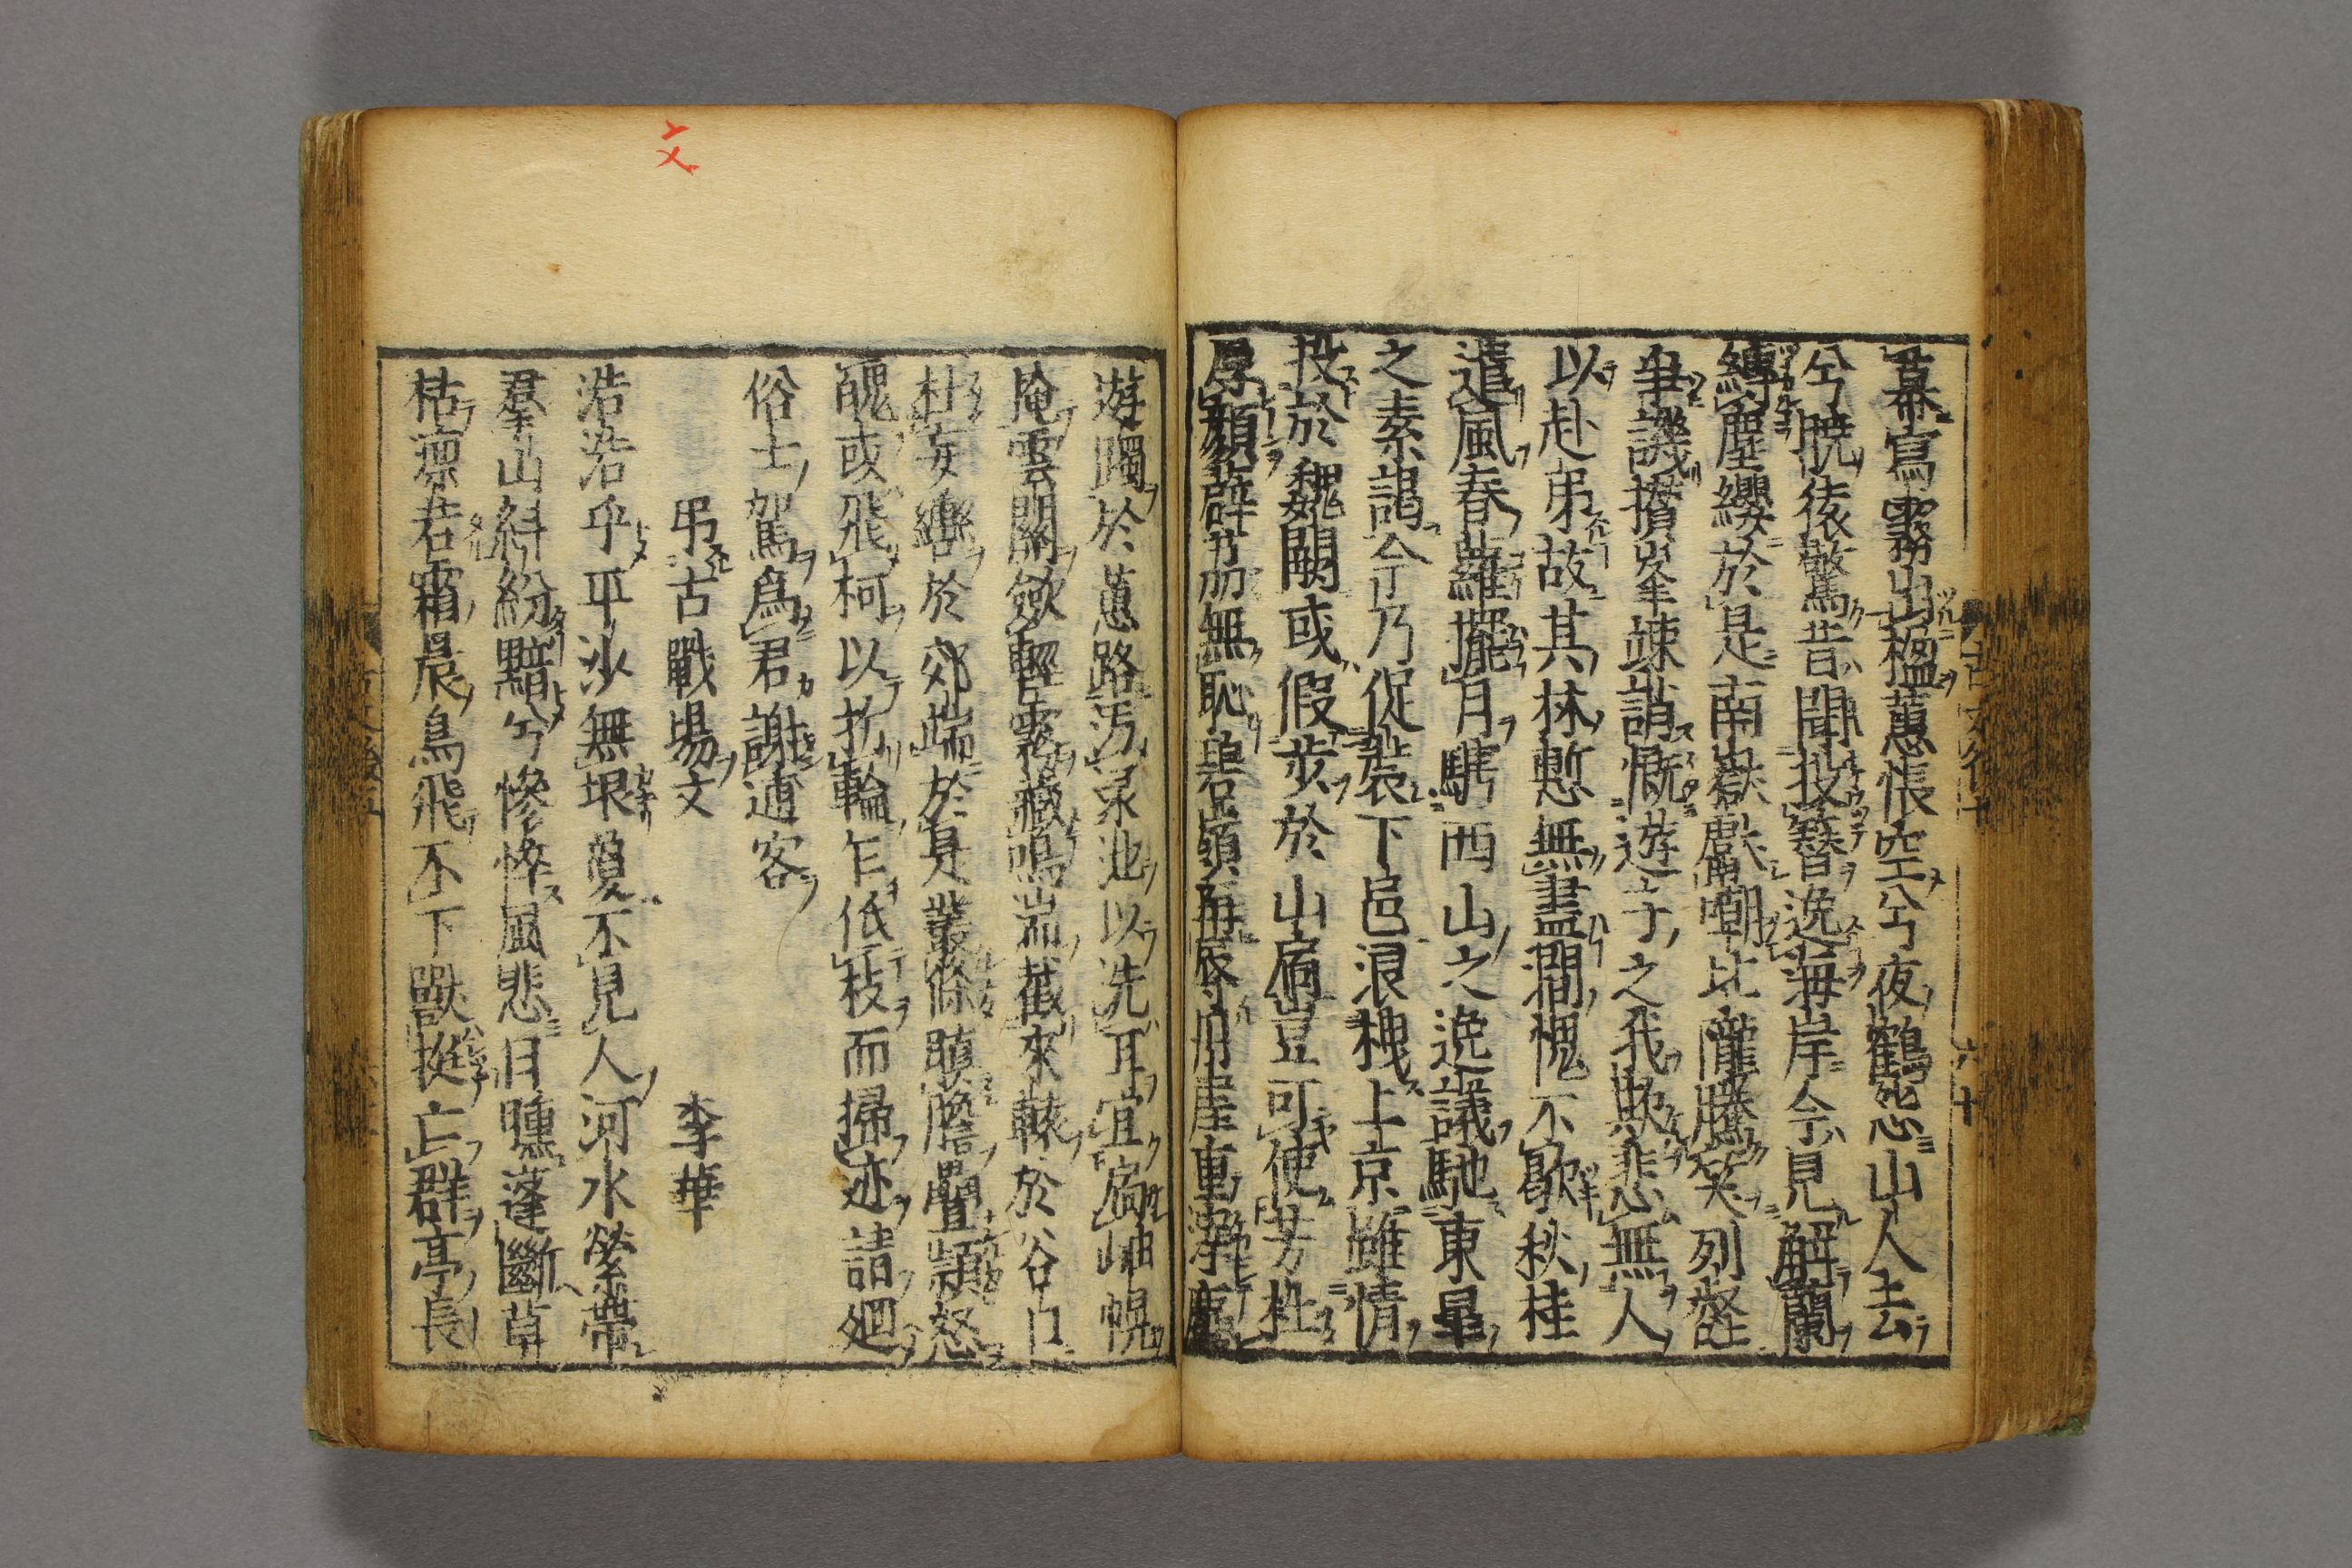 幕寫霧出楹蕙悵空兮夜鶴怨山人去
兮曉猿驚昔聞投簪逸海岸今見解蘭
縛塵纓於是南嶽獻嘲北隴騰笑列壑
爭譏攢峯竦誚慨遊子之我欺悲無人
以赴弔故其林慙無盡澗愧不歇秋桂
遣風春蘿擺月騁西山之逸議馳東皐
之素謁今乃促裝下邑浪拽上京雖情
投於魏闕或假步於山扃豈可使芳杜
厚顏薜荔無恥碧嶺再辱丹崖重滓塵
游躅於蕙路汚淥池以洗耳宜扃岫幌
掩雲關斂輕霧藏鳴湍截來轅於谷口
杜妄轡於郊端於是叢條瞋膽疊穎怒
魄或飛柯以折輪乍低枝而掃迹請廻
俗士駕爲君謝逋客
弔古戰場文
李華
浩浩乎平沙無垠敻不見人河水縈帶
羣山糾紛黯兮慘悴風悲日曛蓬斷草
枯凛若霜晨鳥飛不下獸挺亡群亭長
文
古文後
六十